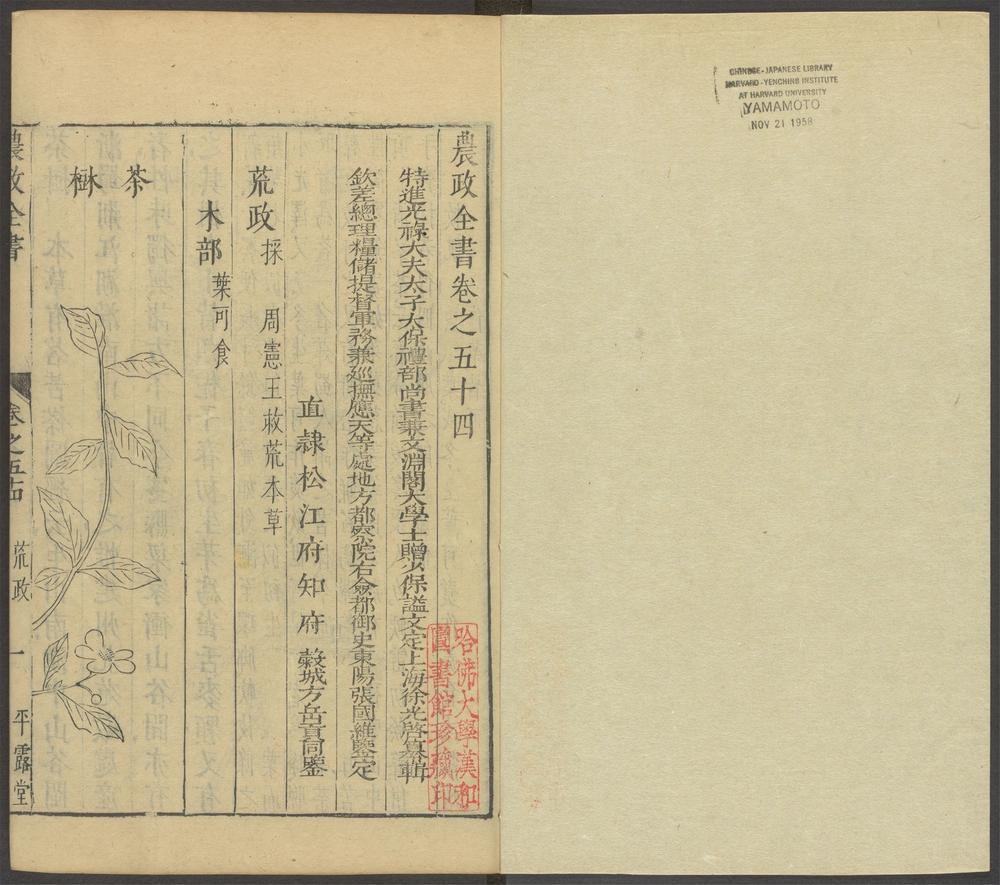 CHINESE-JAPANESE LIBRARY
HARVARD-YENCHING INSTITUTE
AT HARVARD UNIVERSITY
YAMAMOTO
NOV 21 1958
農政全書卷之五十四
特進光祿大夫太子太保禮部尚書兼文淵閣大學士贈少保諡文定上海徐光啓纂輯
欽差總理糧儲提督軍務兼巡撫應天等處地方都察院右僉都御史東陽張國維鑒定
直隸松江府知府穀城方岳貢同鑒
荒政 採周憲王救荒本草
木部 葉可食
茶樹
農政全書
卷之五十四
荒政
一
平露堂
哈佛大學漢和
圖書館珍藏印